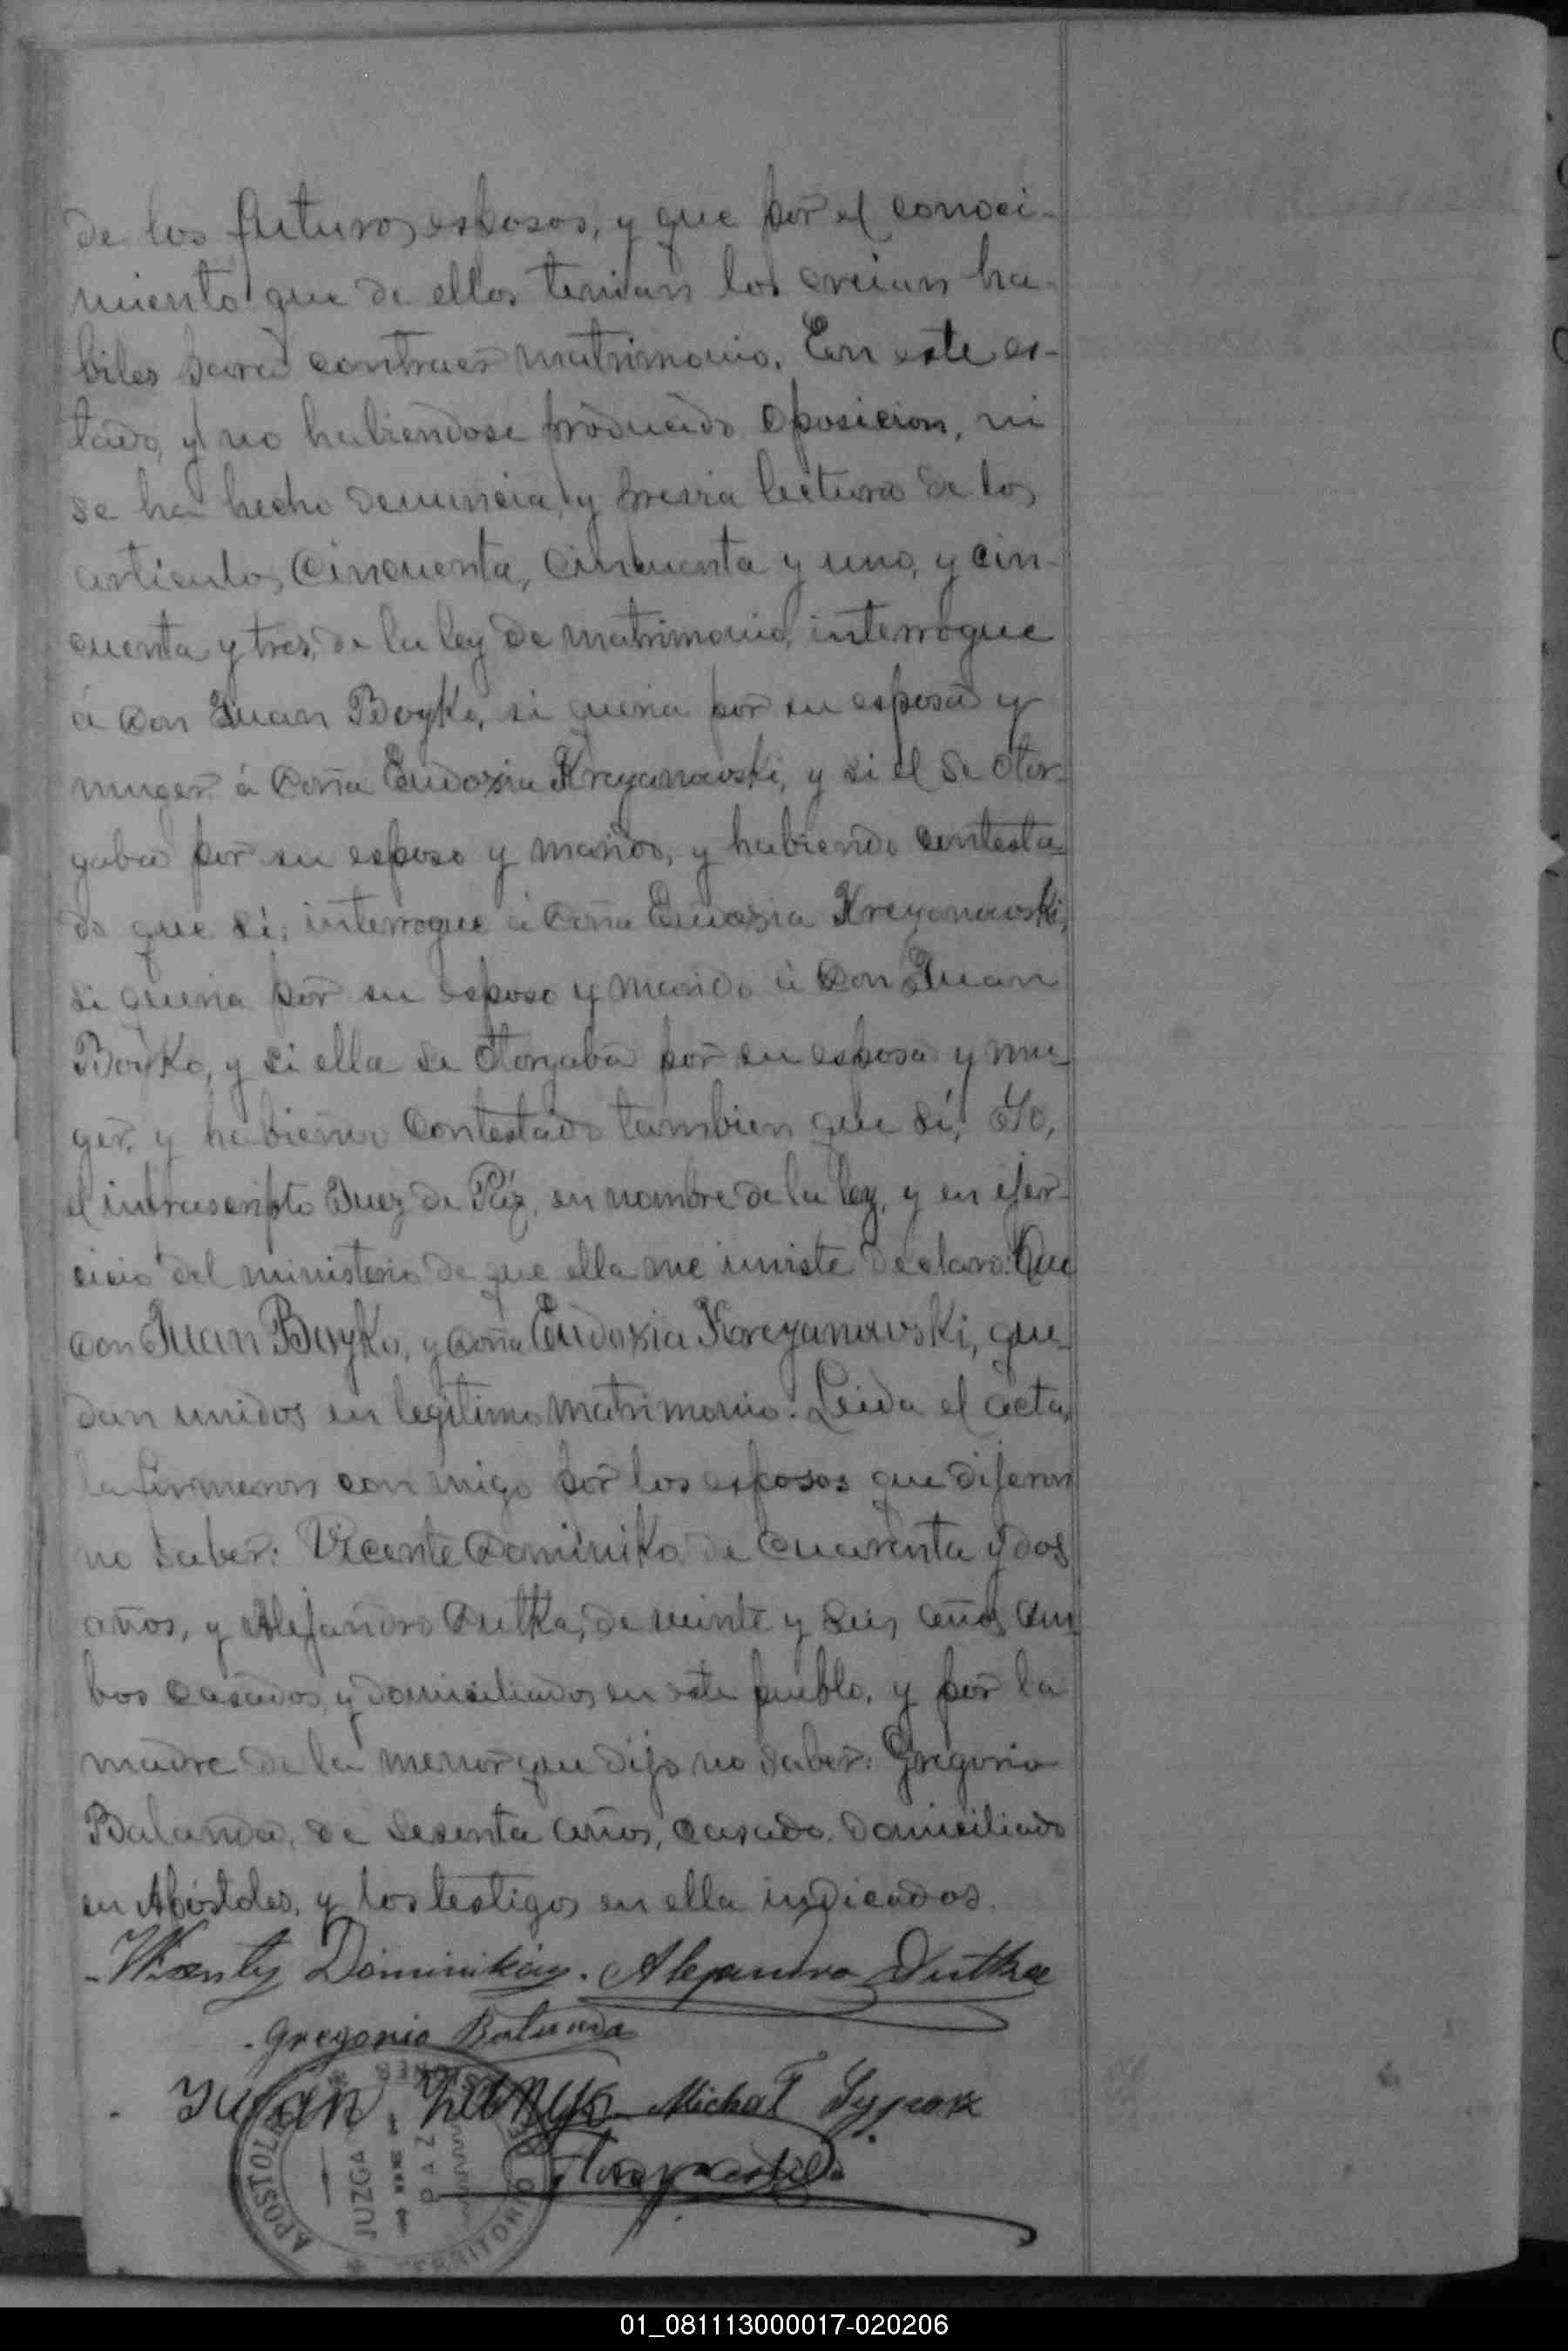 de los futuros esposos, y que por el conoci-
miento que de ellos tenian los creian ha-
biles para contraer matrimonio. En este es-
tado, y no habiendose producido oposicion, ni
se ha hecho denuncia, y previa lectura de los
articulos cincuenta, cincuenta y uno, y cin-
cuenta y tres, de la ley de matrimonio, interrogue
á Don Juan Boyko, si queria por su esposa y
muger á Doña Eudoxia Kreyanowski, y si el se otor-
gaba por su esposo y marido, y habiendo contesta-
do que si; interrogue á Doña Eudoxia Kreyanowski,
si queria por su esposo y marido á Don Juan
Boyko, y si ella se otorgaba por su esposa y mu-
ger, y habiendo contestado tambien que sí, Yo,
el infrascripto Juez de Páz, en nombre de la ley, y en ejer-
cicio del ministerio de que ella me inviste declaro: Que
Don Juan Boyko, y Doña Eudoxia Kreyanowski, que-
dan unidos en legitimo matrimonio. Leida el acta,
la firmaron con migo por los esposos que dijeron
no saber: Vicente Dominiko de cuarenta y dos
años, y Alejandro Dutka, de veinte y seis años, am
bos casados, y domiciliados en este pueblo, y por la
madre de la menor que dijo no saber: Gregorio
Balanda, de sesenta años, casado, domiciliado
en Apóstoles, y los testigos en ella indicados.
Alejandro Dutka
Gregorio Balanda
Juan Michał
APOSTOLES JUZGADO PAZ TERRITORIO
01_081113000017-020206